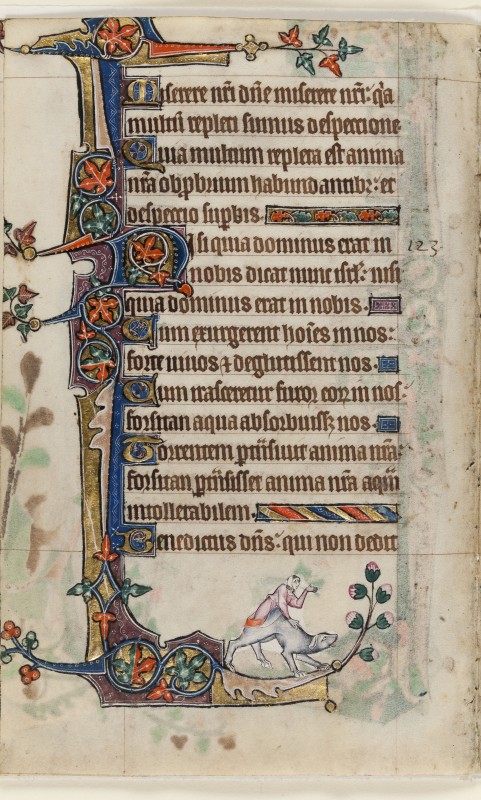 Miserere nr̄i dn̄e miserere nr̄i: q̓a
multū repleti sumus despectione
Quia multum repleta est anima
nr̄a obp̄brium habundantibꝫ: et
despectio suꝑbis.
Nisi quia dominus erat in
nobis dicat nunc isr̄l: nisi
quia dominus erat in nobis.
123
Cum exurgerent hoīes in nos:
forte uiuos ⁊ deglutissent nos.
Cum irasceretur furor eorꝫ in nos:
forsitan aqua absorbuissꝫ nos.
Torrentem ꝑt̄nsiuit anima nr̄a:
forsitan ꝑt̄nsisset anima nr̄a aquā
intollerabilem.
Benedictus dn̄s: qui non dedit